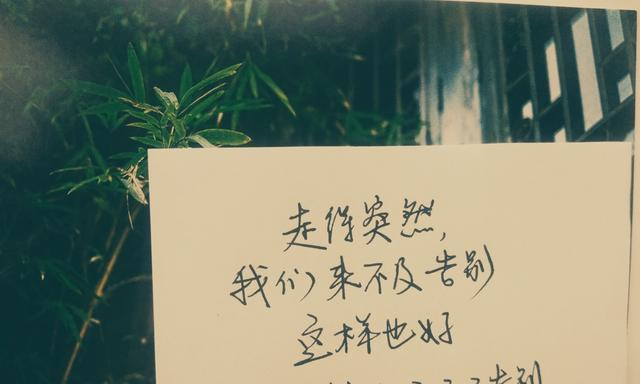 走得突然,
我们来不及告别
这样也好
告别